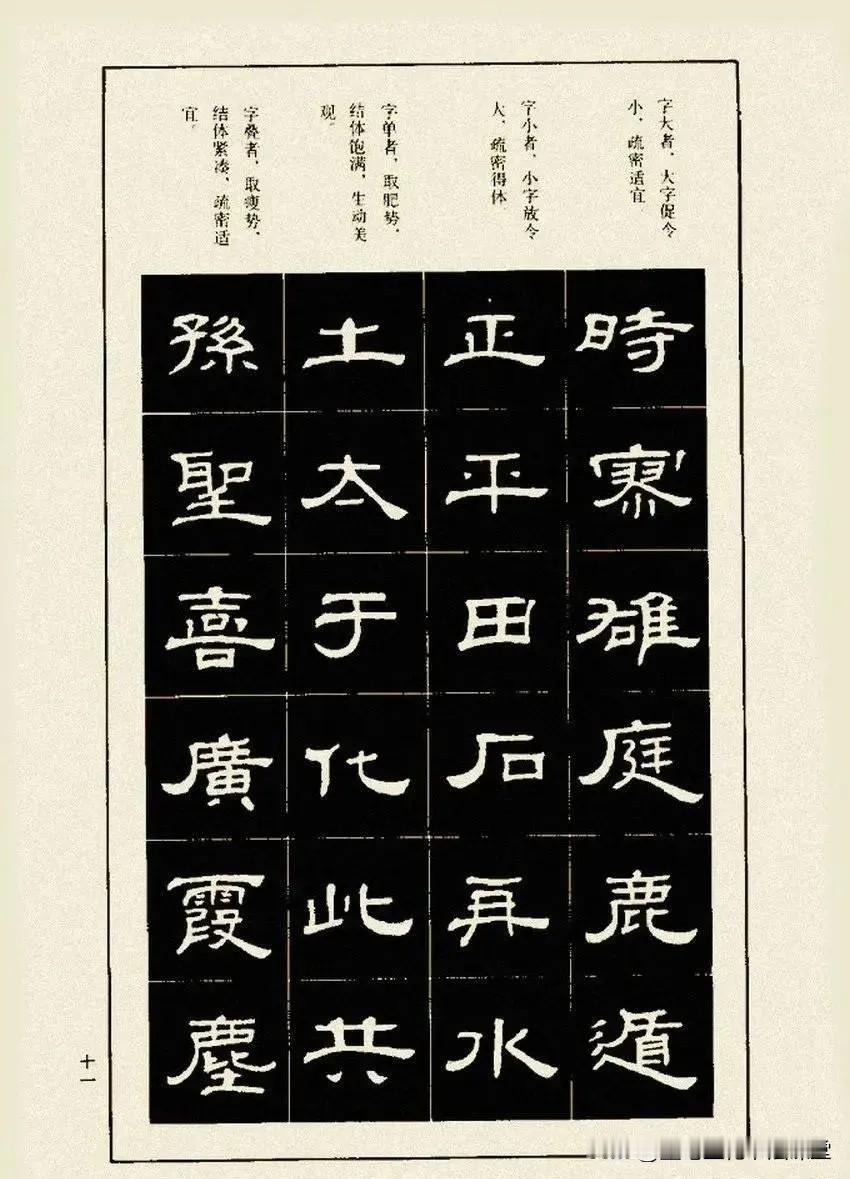 字大者，大字促令
小，疏密适宜
字小者，小字放令
大，疏密得体
字单者，取肥势，
结体饱满，生动美
观。
字叠者，取瘦势，
结体紧凑，疏密适
宜。
時雄庭鹿遁
正平田石再水
土太于化此共
孫聖喜廣霞塵
十一